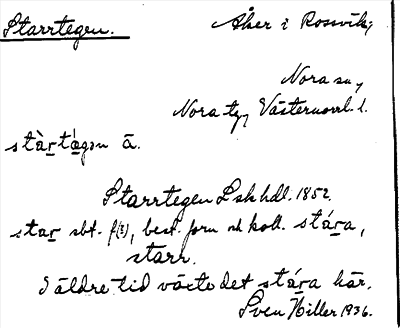 Starrtegen.
Åker i Rossvik,
Nora sn,
Nora tg, Västernorrl. l.
stàr̲tá̲gən ā.
Starrtegen Lskhdl. 1852.
star̲ sbt. f(3), best. form och koll. stár̲a,
starr.
I äldre tid växte det stár̲a här.
Sven Hiller 1936.